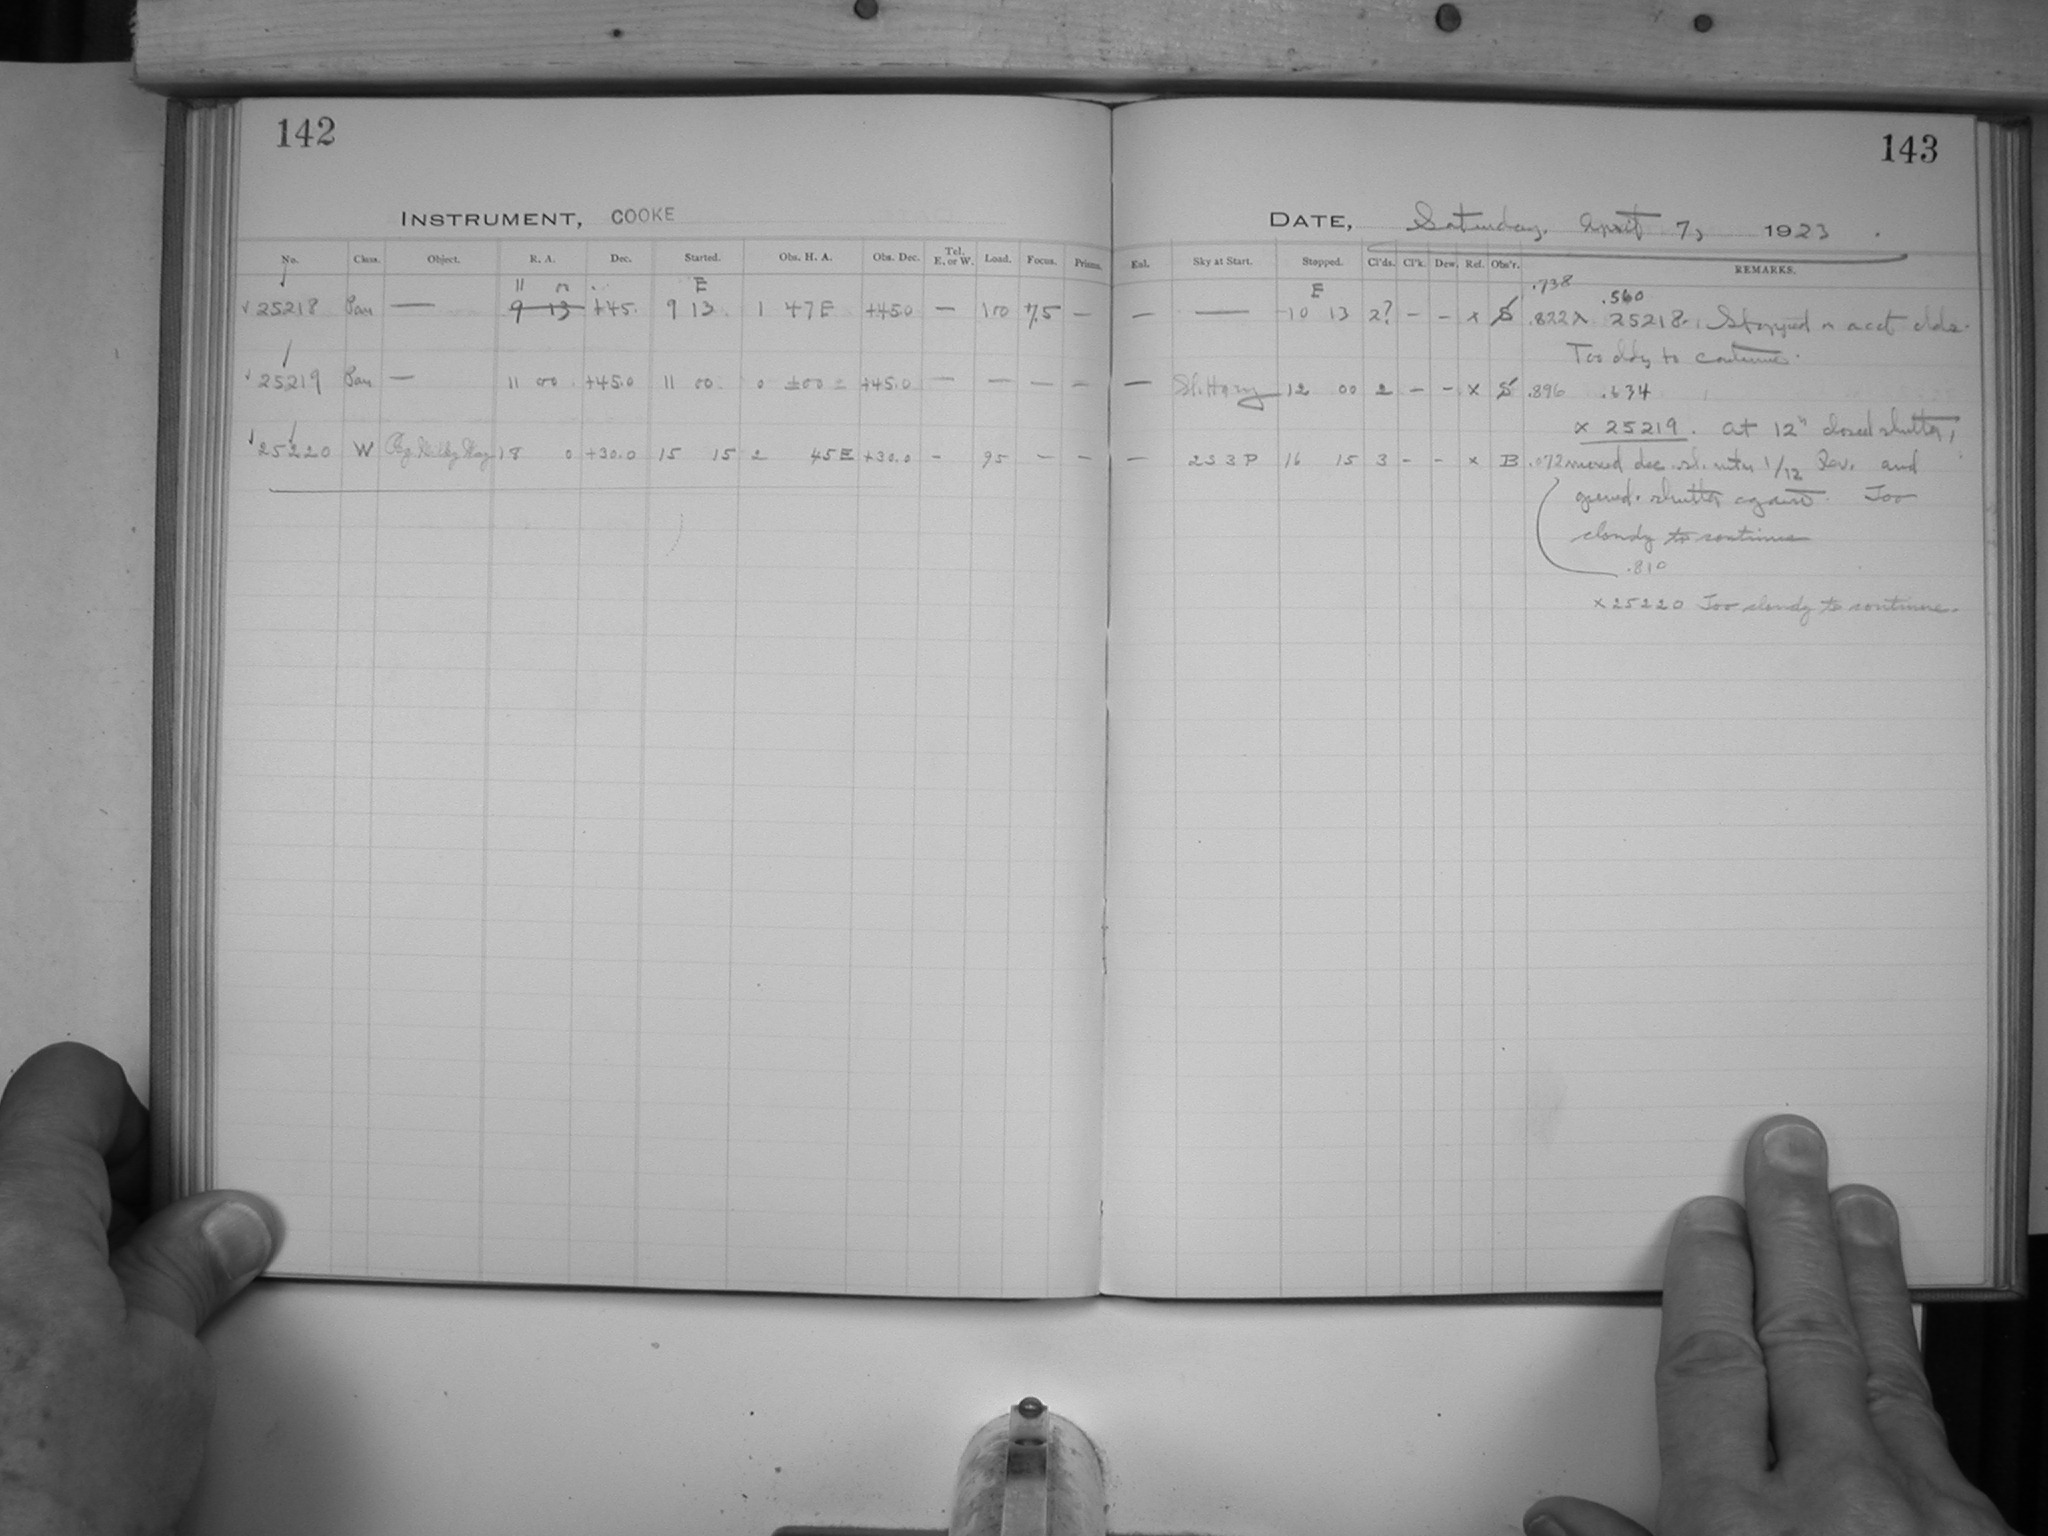 142
143
INSTRUMENT, COOKE
DATE, Saturday, April 7, 1923.
No. Class. Object. R. A. Dec. Started. Obs. H. A. Obs. Dec. Tel. E. or W. Load. Focus. Prisms. Enl. Sky at Start. Stopped. Cl'ds. Cl'k. Dew. Ref. Obs'r. REMARKS.
11 E E .738 .560
25218 Pan — 9 13 +45. 9 13 1 47 E +45.0 — 100 7.5 — — — 10 13 2? - - x S .822 25218. Stopped acct clds.
Too cldy to continue.
25219 Pan — 11 00 +45.0 11 00 0 ±00 +45.0 — — — — — Sl. Hazy 12 00 2 - - x S .896 .634
x 25219. at 12h closed shutter,
25220 W Milky Way 18 0 +30.0 15 15 2 45 E +30.0 - 95 — - — 233P 16 15 3 - - x B .072 moved dec. 1/12 Rev. and
opened shutter again. Too
cloudy to continue
.810
x 25220 Too cloudy to continue.